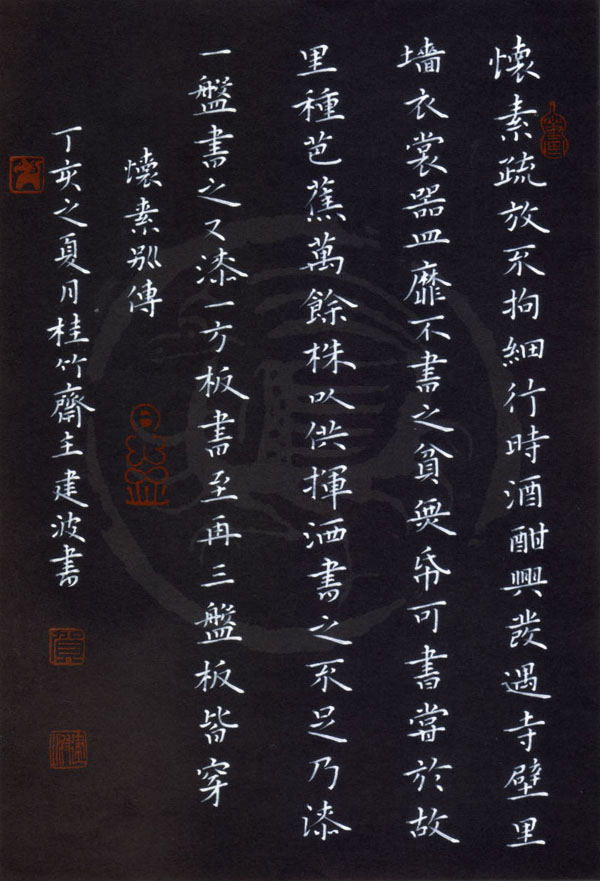 懷素疏放不拘細行時酒酣興發遇寺壁里
墻衣裳器皿靡不書之貧無帋可書嘗於故
里種芭蕉萬餘株以供揮洒書之不足乃漆
一盤書之又漆一方板書至再三盤板皆穿
懷素別傳
丁亥之夏月桂竹齋主建波書